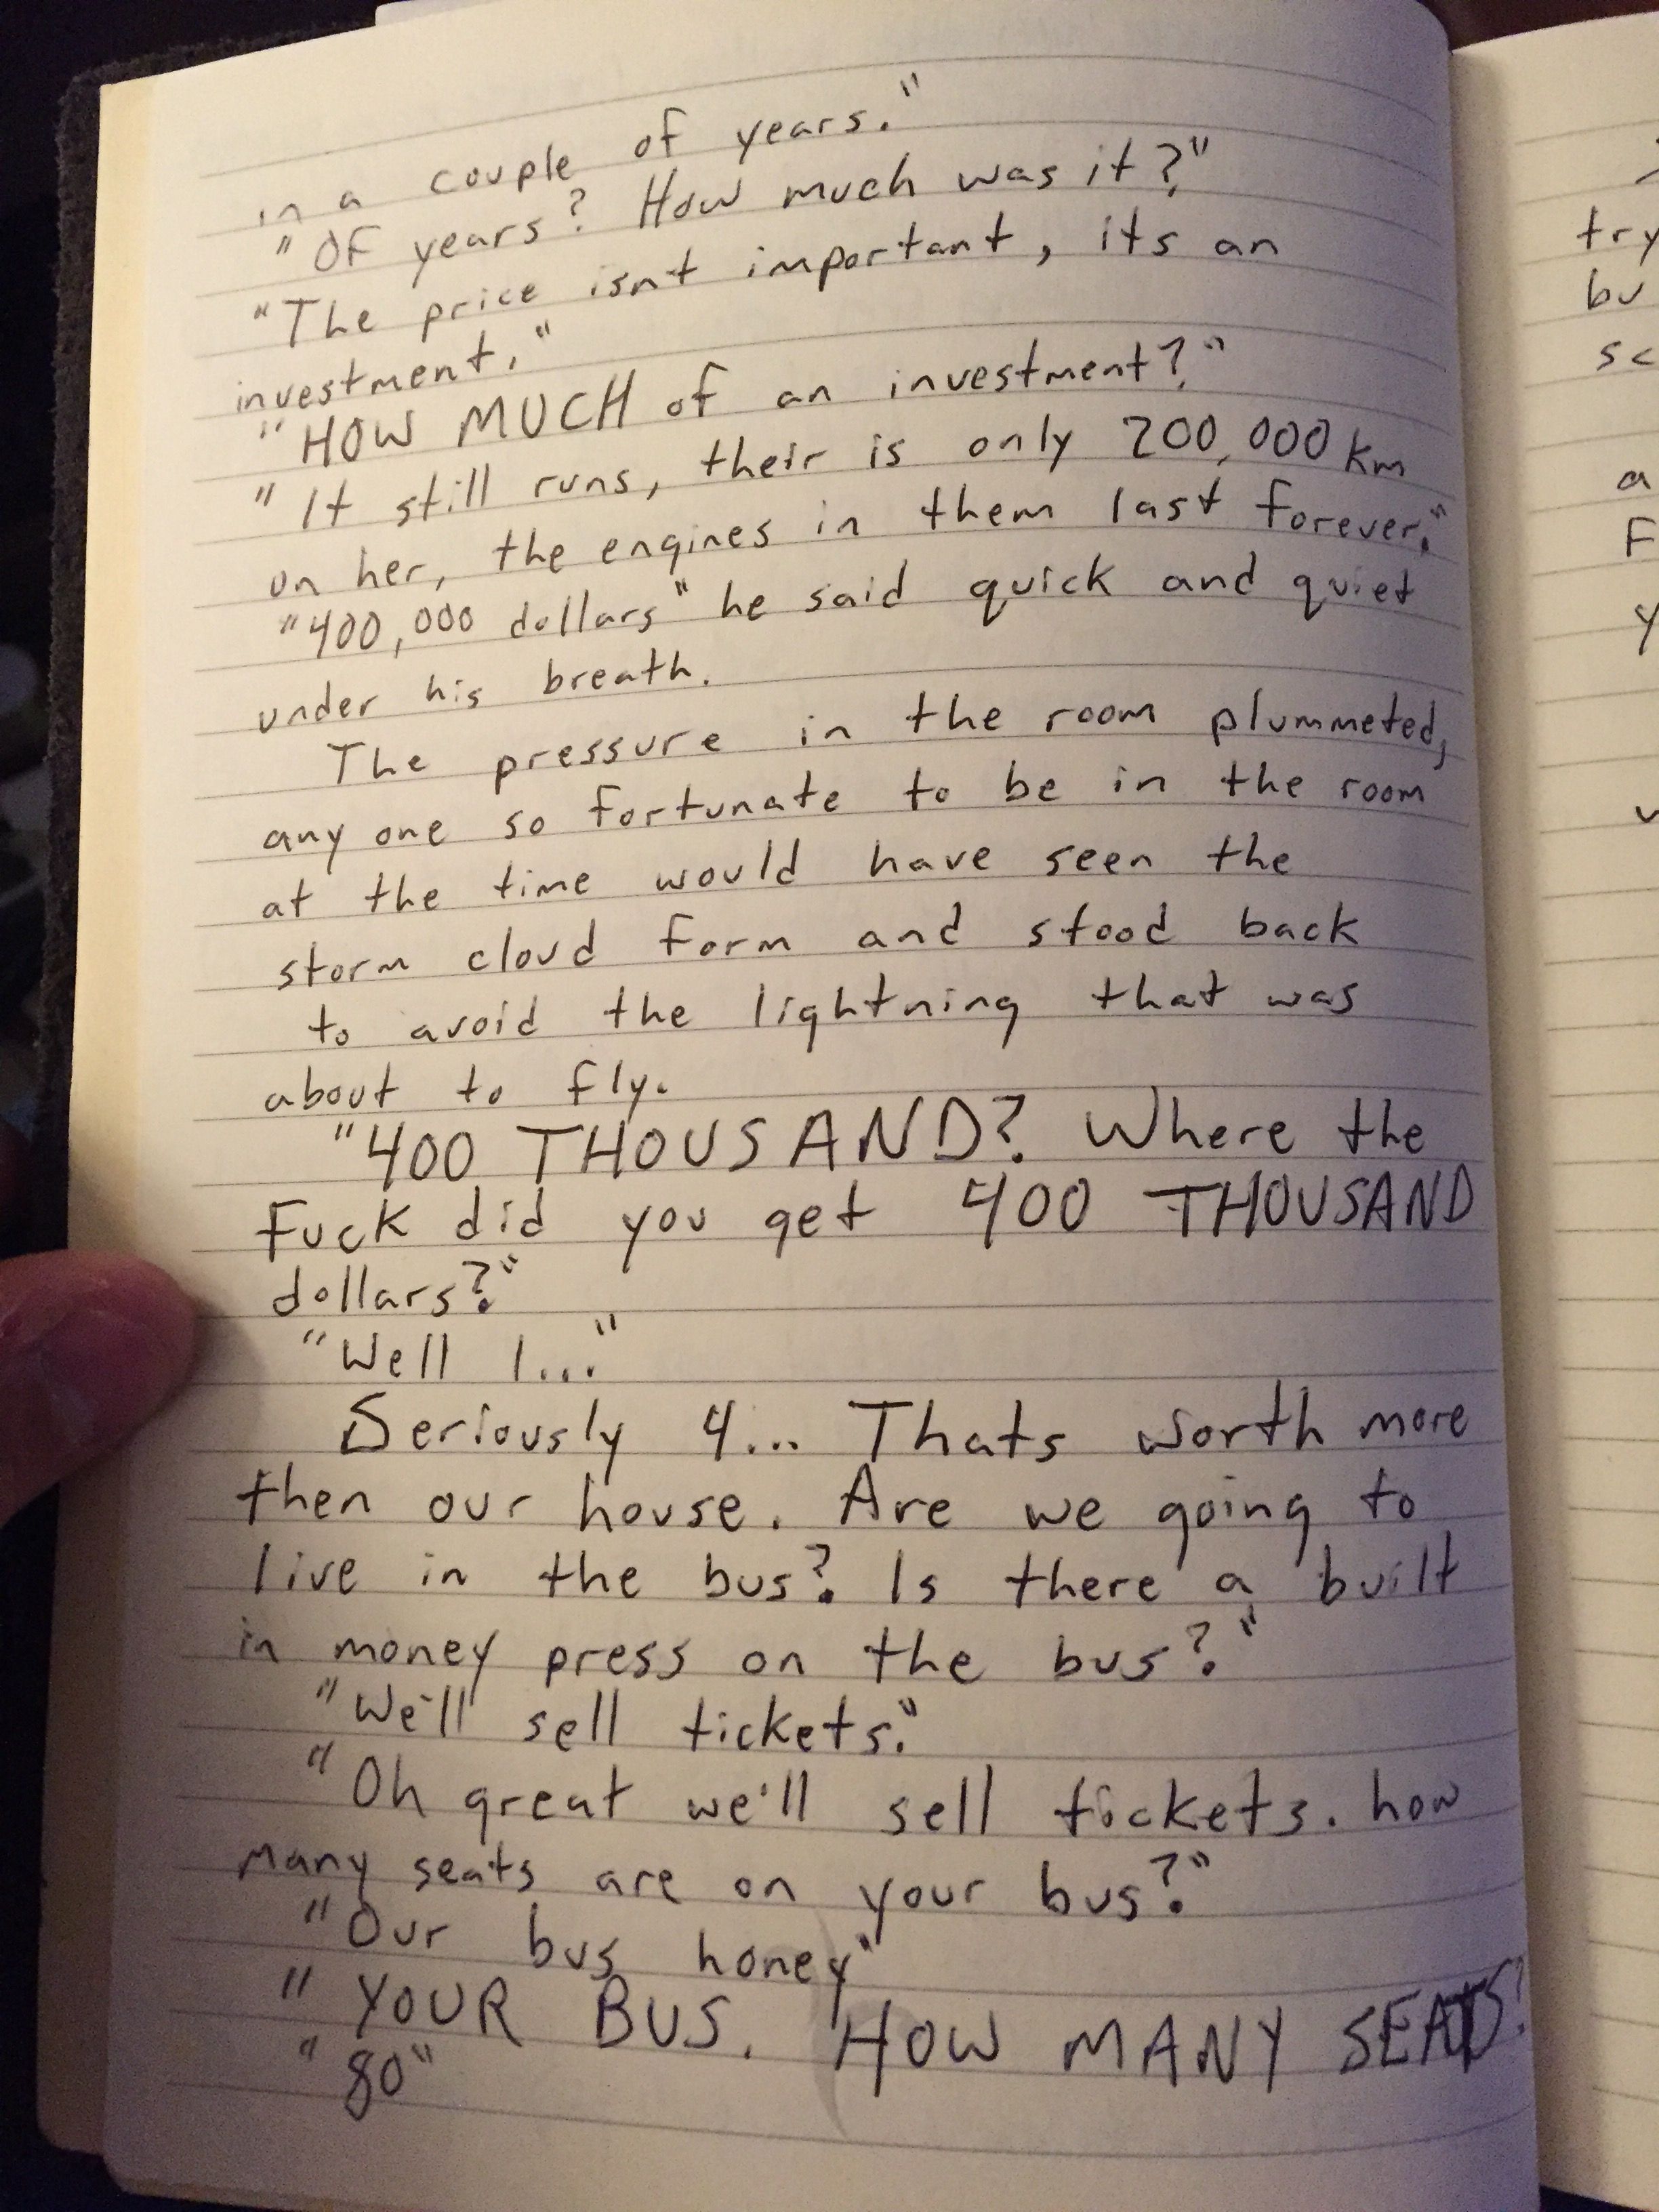 in a couple of years."
"Of years? How much was it?"
"The price isnt important, its an
investment."
"HOW MUCH of an investment?"
"It still runs, their is only 200,000 km
on her, the engines in them last forever."
"400,000 dollars" he said quick and quiet
under his breath.
The pressure in the room plummeted,
any one so fortunate to be in the room
at the time would have seen the
storm cloud form and stood back
to avoid the lightning that was
about to fly.
"400 THOUSAND? Where the
Fuck did you get 400 THOUSAND
dollars?"
"Well I..."
Seriously 4... Thats worth more
then our house. Are we going to
live in the bus? Is there a built
in money press on the bus?"
"We'll sell tickets."
"Oh great we'll sell tickets. how
many seats are on your bus?"
"Our bus honey"
"YOUR BUS. HOW MANY SEATS?
"80"
try
bu
sc
a
F
y